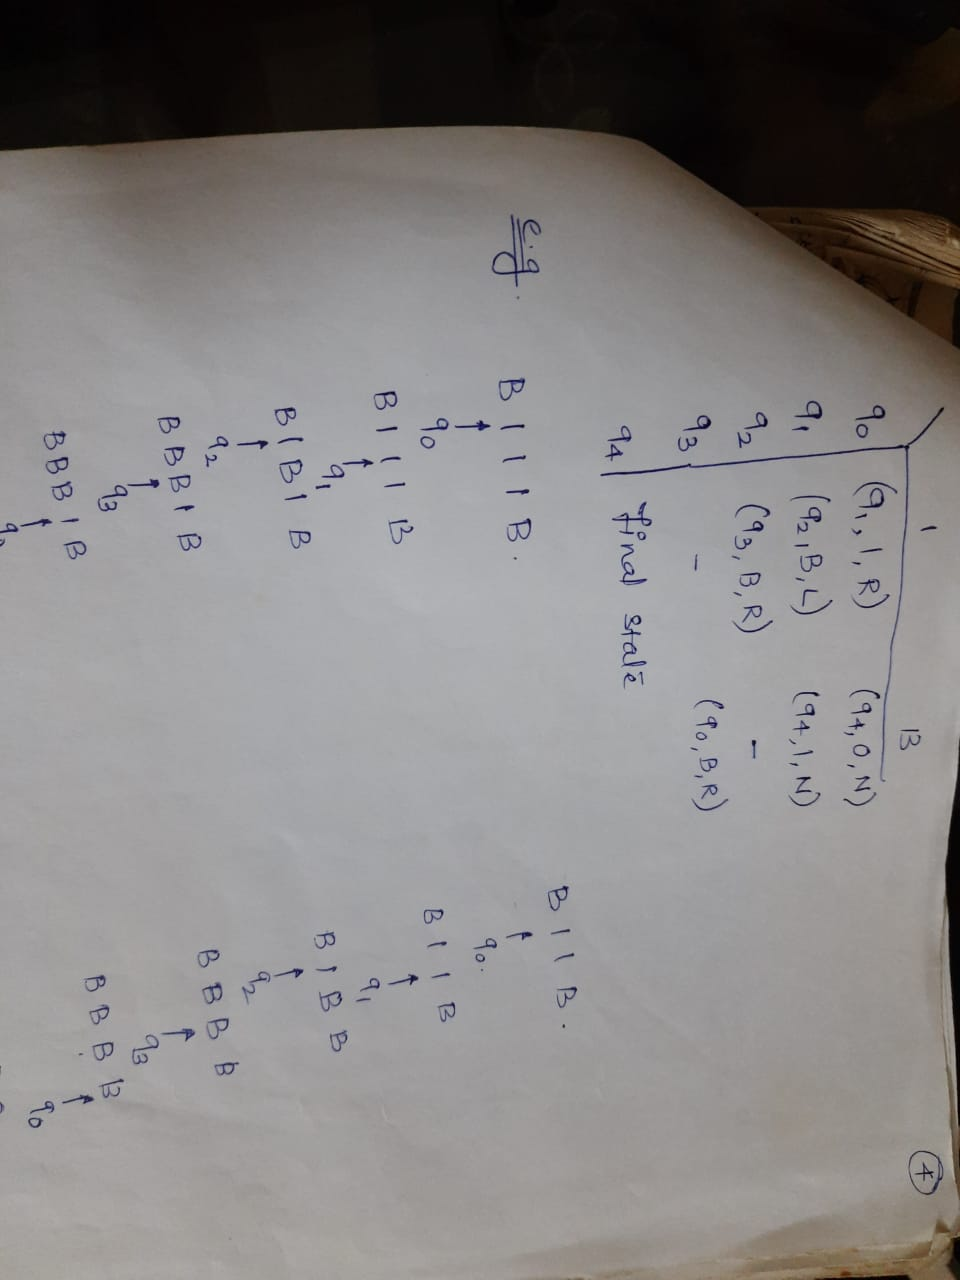 ④
1 B
q0 (q1, 1, R) (q4, 0, N)
q1 (q2, B, L) (q4, 1, N)
q2 (q3, B, R) -
q3 - (q0, B, R)
q4 final state
e.g.
B 1 1 1 B.
↑
q0
B 1 1 1 B
↑
q1
B 1 B 1 B
↑
q2
B B B 1 B
↑
q3
B B B 1 B
↑
B 1 1 B.
↑
q0.
B 1 1 B
↑
q1
B 1 B B
↑
q2
B B B B
↑
q3
B B B B
↑
q0